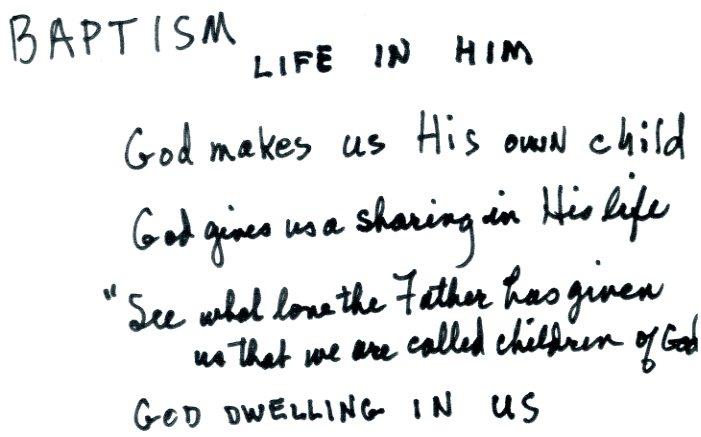 BAPTISM
LIFE IN HIM
God makes us His own child
God gives us a sharing in His life
"See what love the Father has given
us that we are called children of God
GOD DWELLING IN US